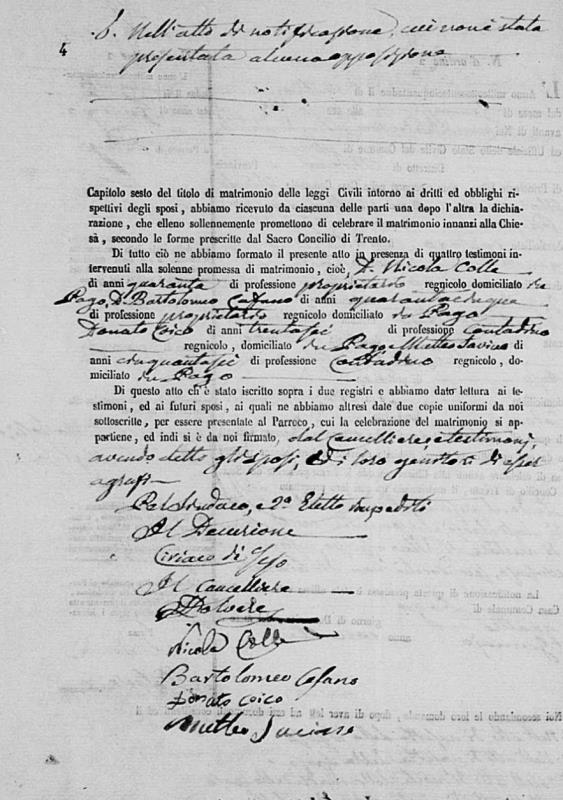 4
6. Nell'atto di notificazione, cui non è stata
presentata alcuna opposizione
Capitolo sesto del titolo di matrimonio delle leggi Civili intorno ai dritti ed obblighi ri-
spettivi degli sposi, abbiamo ricevuto da ciascuna delle parti una dopo l'altra la dichia-
razione, che elleno sollennemente promettono di celebrare il matrimonio innanzi alla Chie-
sà, secondo le forme prescritte dal Sacro Concilio di Trento.
Di tutto ciò ne abbiamo formato il presente atto in presenza di quattro testimoni in-
tervenuti alla solenne promessa di matrimonio, cioè, D. Nicola Colle
di anni quaranta di professione proprietario regnicolo domiciliato in
Pago, D. Bartolomeo Cafano di anni quarantacinque
di professione proprietario regnicolo domiciliato in Pago
Donato Coico di anni trentasei di professione contadino
regnicolo, domiciliato in Pago, e Matteo di
anni cinquantasei di professione Contadino regnicolo, do-
miciliato in Pago
Di questo atto ch'è stato iscritto sopra i due registri e abbiamo dato lettura ai te-
stimoni, ed ai futuri sposi, ai quali ne abbiamo altresì date due copie uniformi da noi
sottoscritte, per essere presentate al Parroco, cui la celebrazione del matrimonio si ap-
partiene, ed indi si è da noi firmato, dal Cancelliere e testimoni,
avendo detto gli sposi, e di loro genitori di esser
Pel Sindaco, e 2º Eletto impediti
Il Decurione
Ciriaco di
Il Cancelliere
Nicola Colle
Bartolomeo Cafano
Donato Coico
Matteo